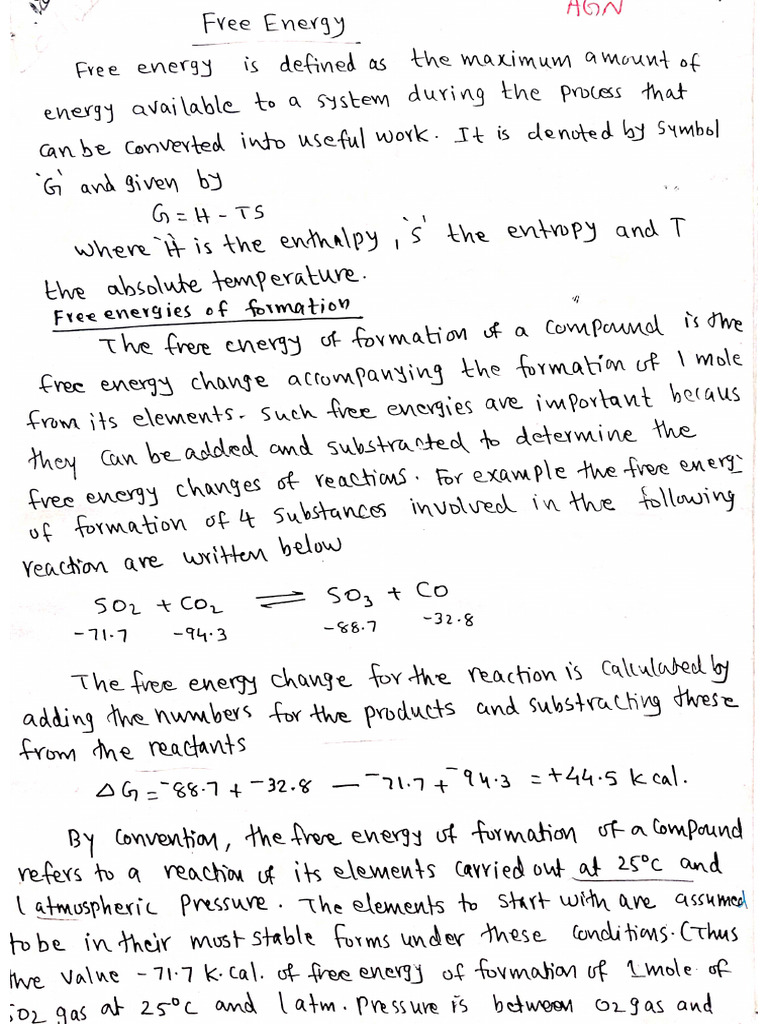 Free Energy
AGN
Free energy is defined as the maximum amount of
energy available to a system during the process that
can be converted into useful work. It is denoted by symbol
'G' and given by
G = H - TS
where 'H' is the enthalpy, 's' the entropy and T
the absolute temperature.
Free energies of formation
The free energy of formation of a compound is the
free energy change accompanying the formation of 1 mole
from its elements. Such free energies are important becaus
they can be added and substracted to determine the
free energy changes of reactions. For example the free energ
of formation of 4 substances involved in the following
reaction are written below
SO2 + CO2 ⇌ SO3 + CO
-71.7 -94.3 -88.7 -32.8
The free energy change for the reaction is calculated by
adding the numbers for the products and substracting these
from the reactants
ΔG = -88.7 + -32.8 — -71.7 + -94.3 = +44.5 k cal.
By convention, the free energy of formation of a compound
refers to a reaction of its elements carried out at 25°C and
1 atmospheric pressure. The elements to start with are assumed
to be in their most stable forms under these conditions. (Thus
the value -71.7 k.cal. of free energy of formation of 1 mole of
SO2 gas at 25°C and 1 atm. pressure is between O2 gas and